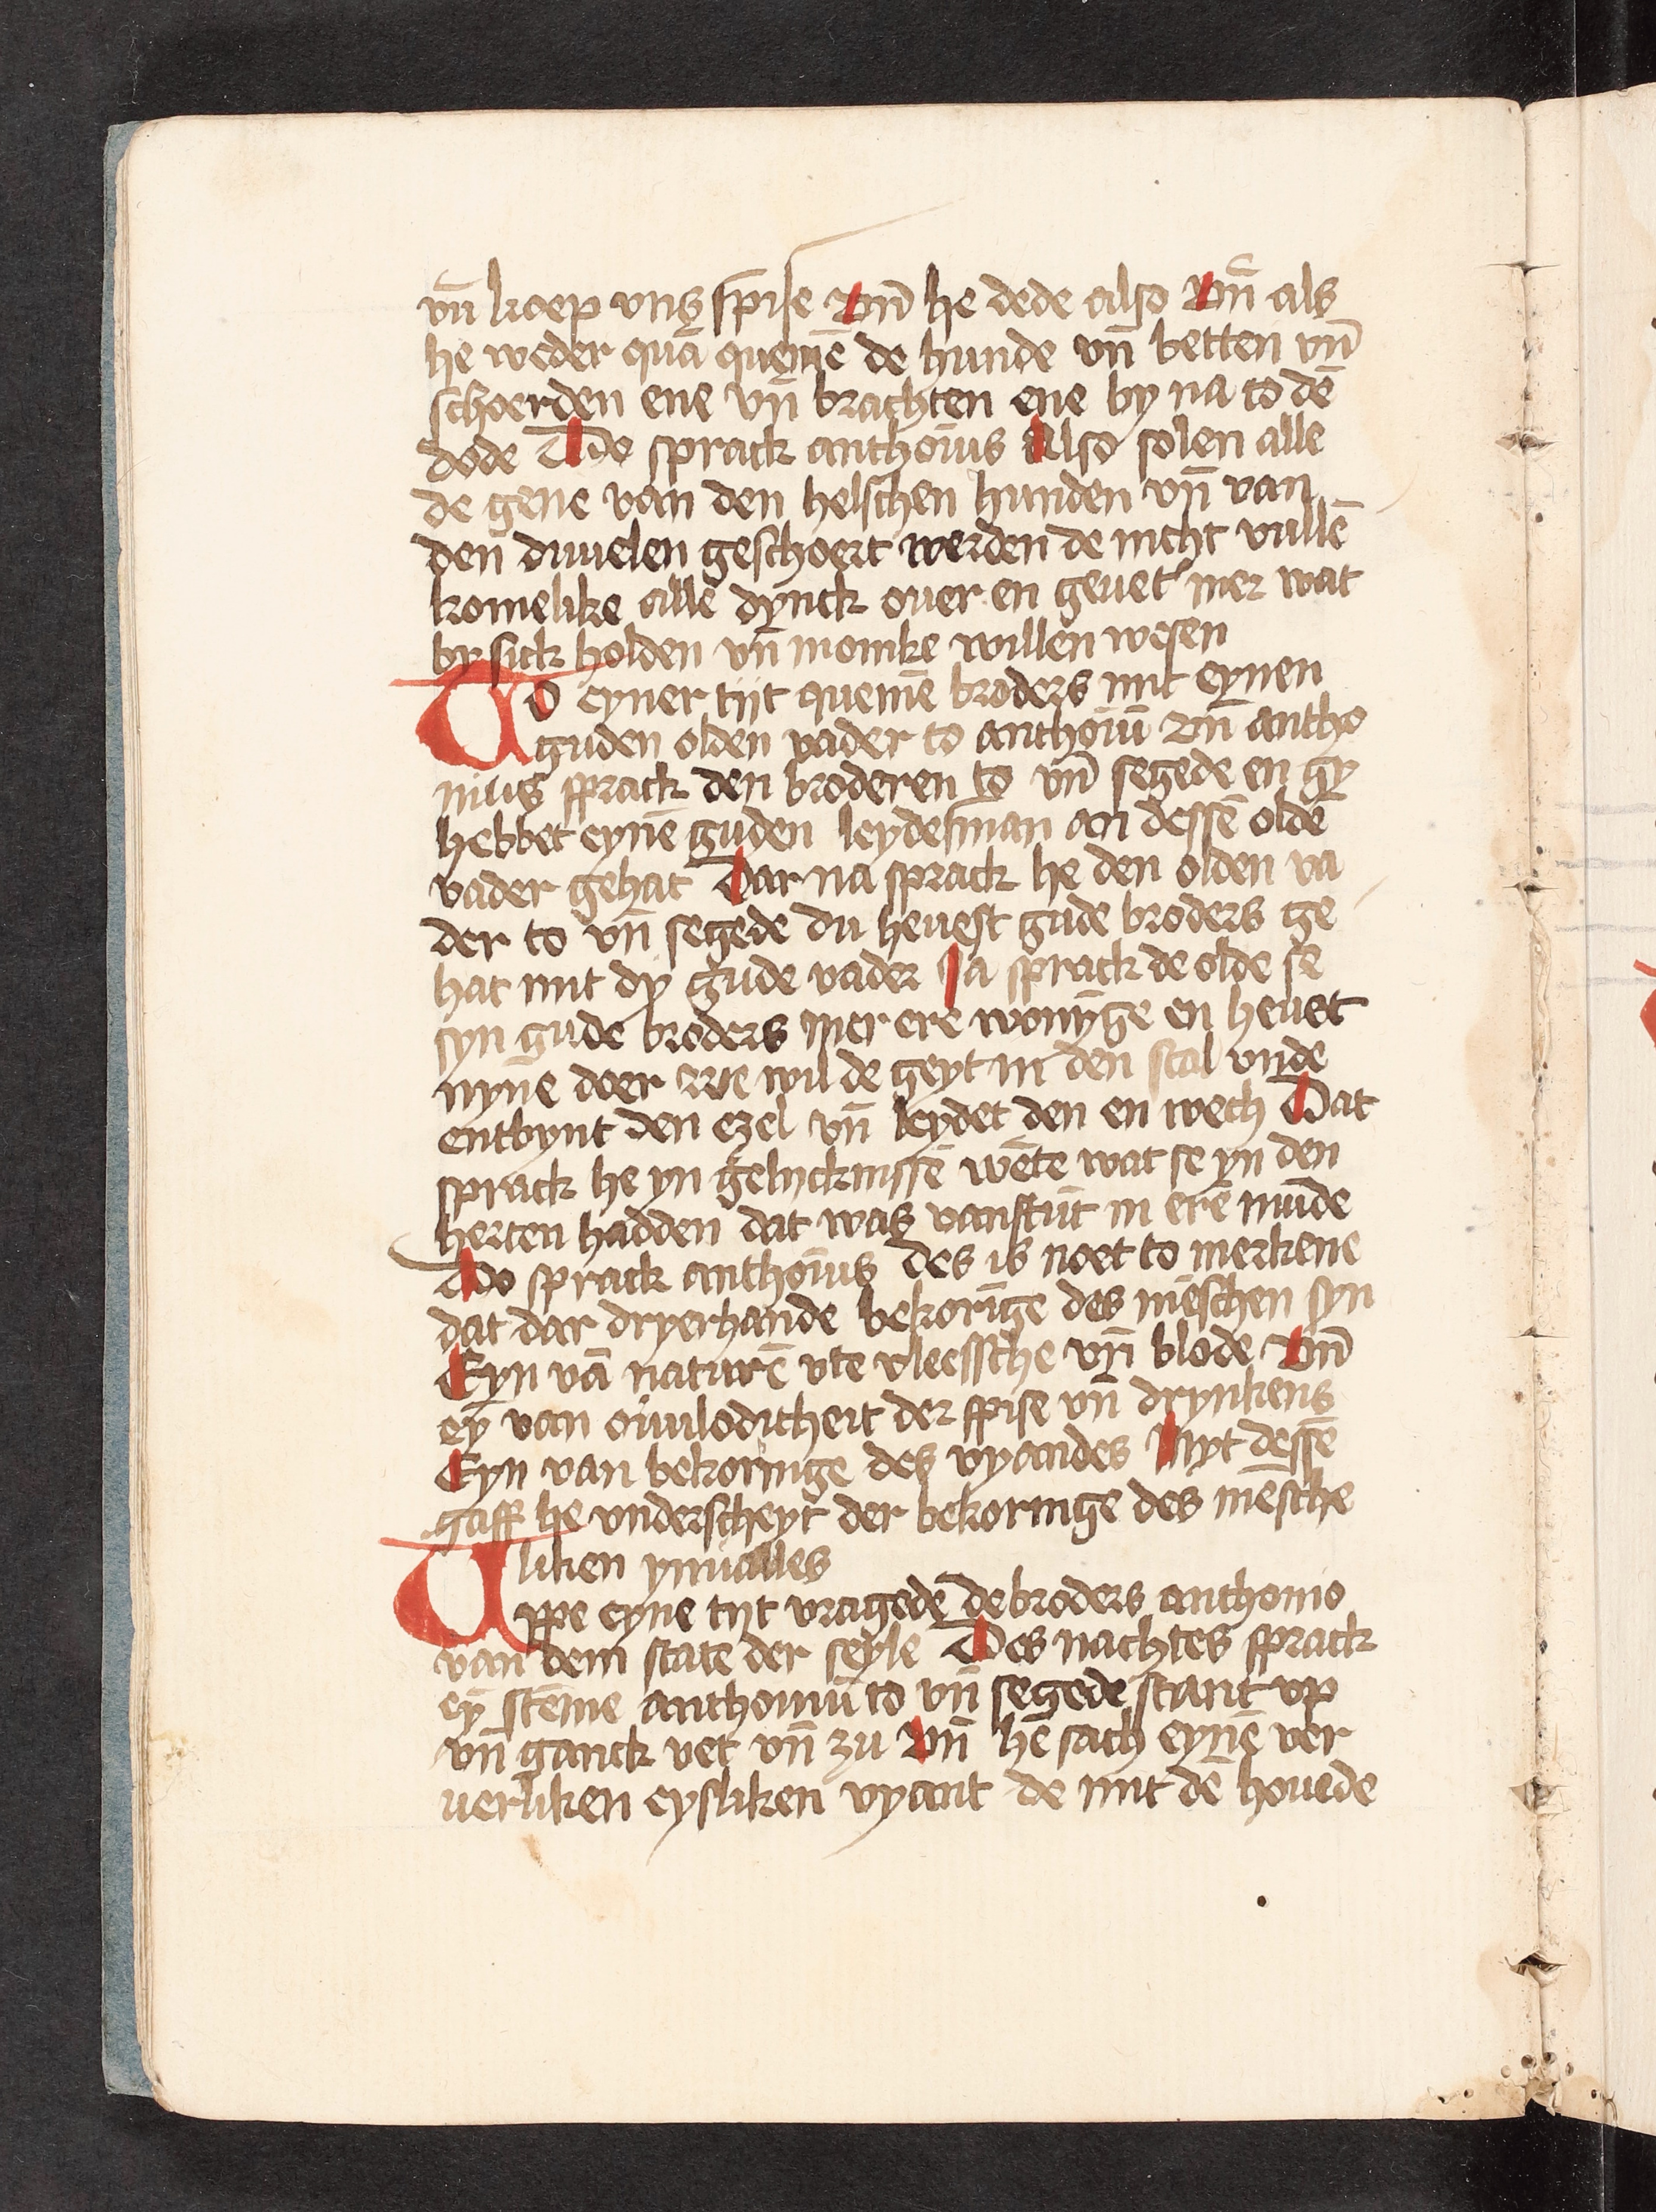 vn̄ koep vns spise Vn̄ he dede also Vn̄ als
he weder quā quemē de hunde vn̄ betten vn̄
schoerden ene vn̄ brachten ene by na to dē
dode Do sprack anthoīus Also solen alle
de gene van den helschen hunden vn̄ van
den duuelen geschoert werden de nicht vullē
komelike alle dynck ouer en geuet mer wat
by sick holden vn̄ moncke willen wesen
To eyner tijt quemē broders mit eynen
guden olden vader to anthoīū Vn̄ antho
nius sprack den broderen to vn̄ segede en gy
hebbet eynē guden leydesman an dessē oldē
vader gehat Dar na sprack he den olden va
der to vn̄ segede du heuest gude broders ge
hat mit dy gude vader Ja sprack de olde se
syn gude broders mer ere wonȳge en heuet
nyne doer We wil de geyt in den stal vnde
entbynt den ezel vn̄ leydet den en wech Dat
sprack he yn gelijcknissē wēte wat se yn den
herten hadden dat was vanstūt in erē mūde
Do sprack anthoīus des is noet to merkene
dat dar dryerhande bekorīge des mēschen syn
Eyn vā naturē vte vleessche vn̄ blode Vn̄
eȳ van ouulodicheit der spise vn̄ drynkens
Eyn van bekoringe des vyandes Myt dessē
gaff he vnderscheyt der bekoringe des mēsche
liken ynualles
Uppe eyne tijt vragedē de broders anthonio
van dem state der seyle Des nachtes sprack
eȳ stēme anthoniū to vn̄ segede stant vp
vn̄ ganck vet vn̄ zu Vn̄ he sach eynē ver
uerliken eysliken vyant de mit dē houede